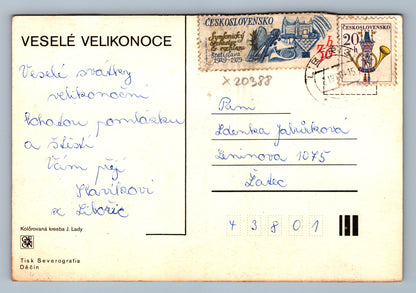 VESELÉ VELIKONOCE
Veselé svátky
velikonoční
bohatou pomlázku
a štěstí
Vám přejí
Havlíkovi
z Libořic
Kolorovaná kresba J. Lady
Tisk Severografia
Děčín
ČESKOSLOVENSKO
Symfonický
orchestr
Bratislava
1929-1979
ČESKOSLOVENSKO
20 h
x 20388
Paní
Zdenka Jabůrková
Leninova 1075
Žatec
43801